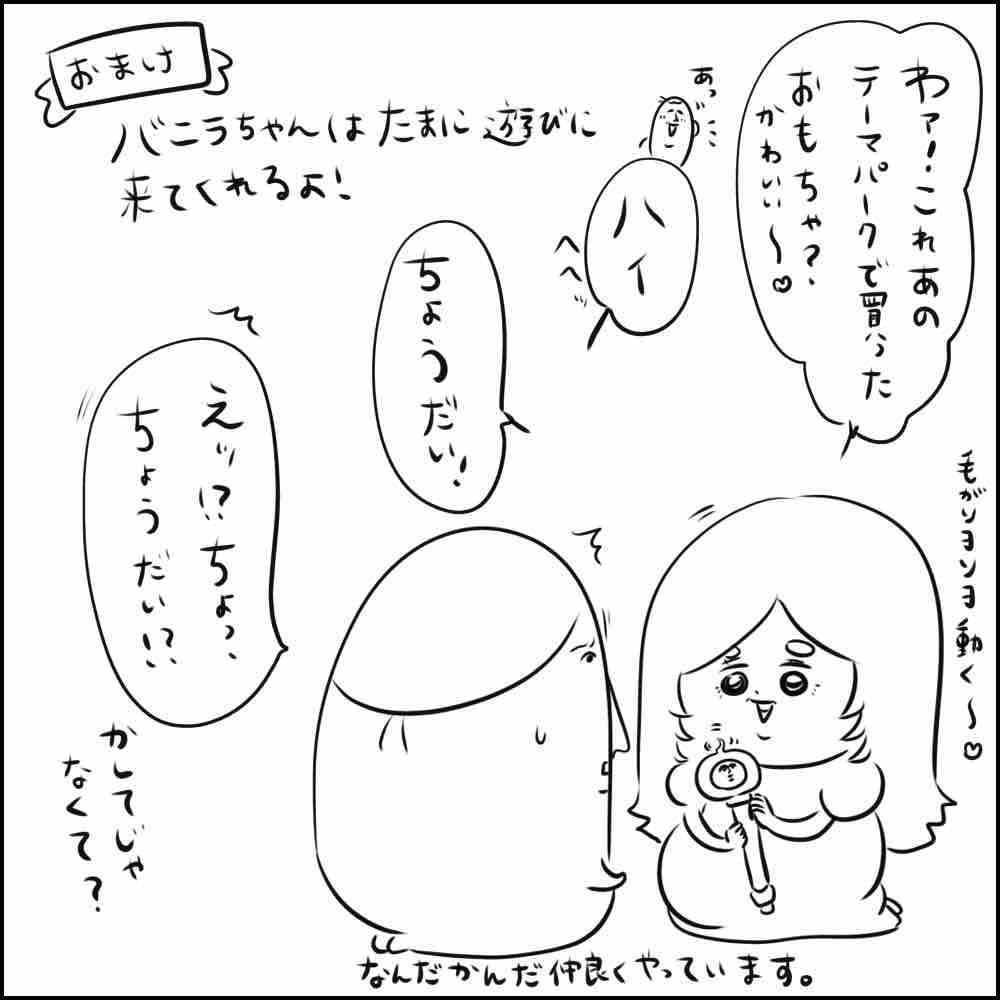 おまけ
バニラちゃんはたまに遊びに
来てくれるよ!
わァ!これあの
テーマパークで買った
おもちゃ?
かわいい〜♡
あっ
ハイ
へへ
ちょうだい!
えッ!?ちょっ、
ちょうだい!?
かしてじゃ
なくて?
毛がソヨソヨ動く〜♡
なんだかんだ仲良くやっています。